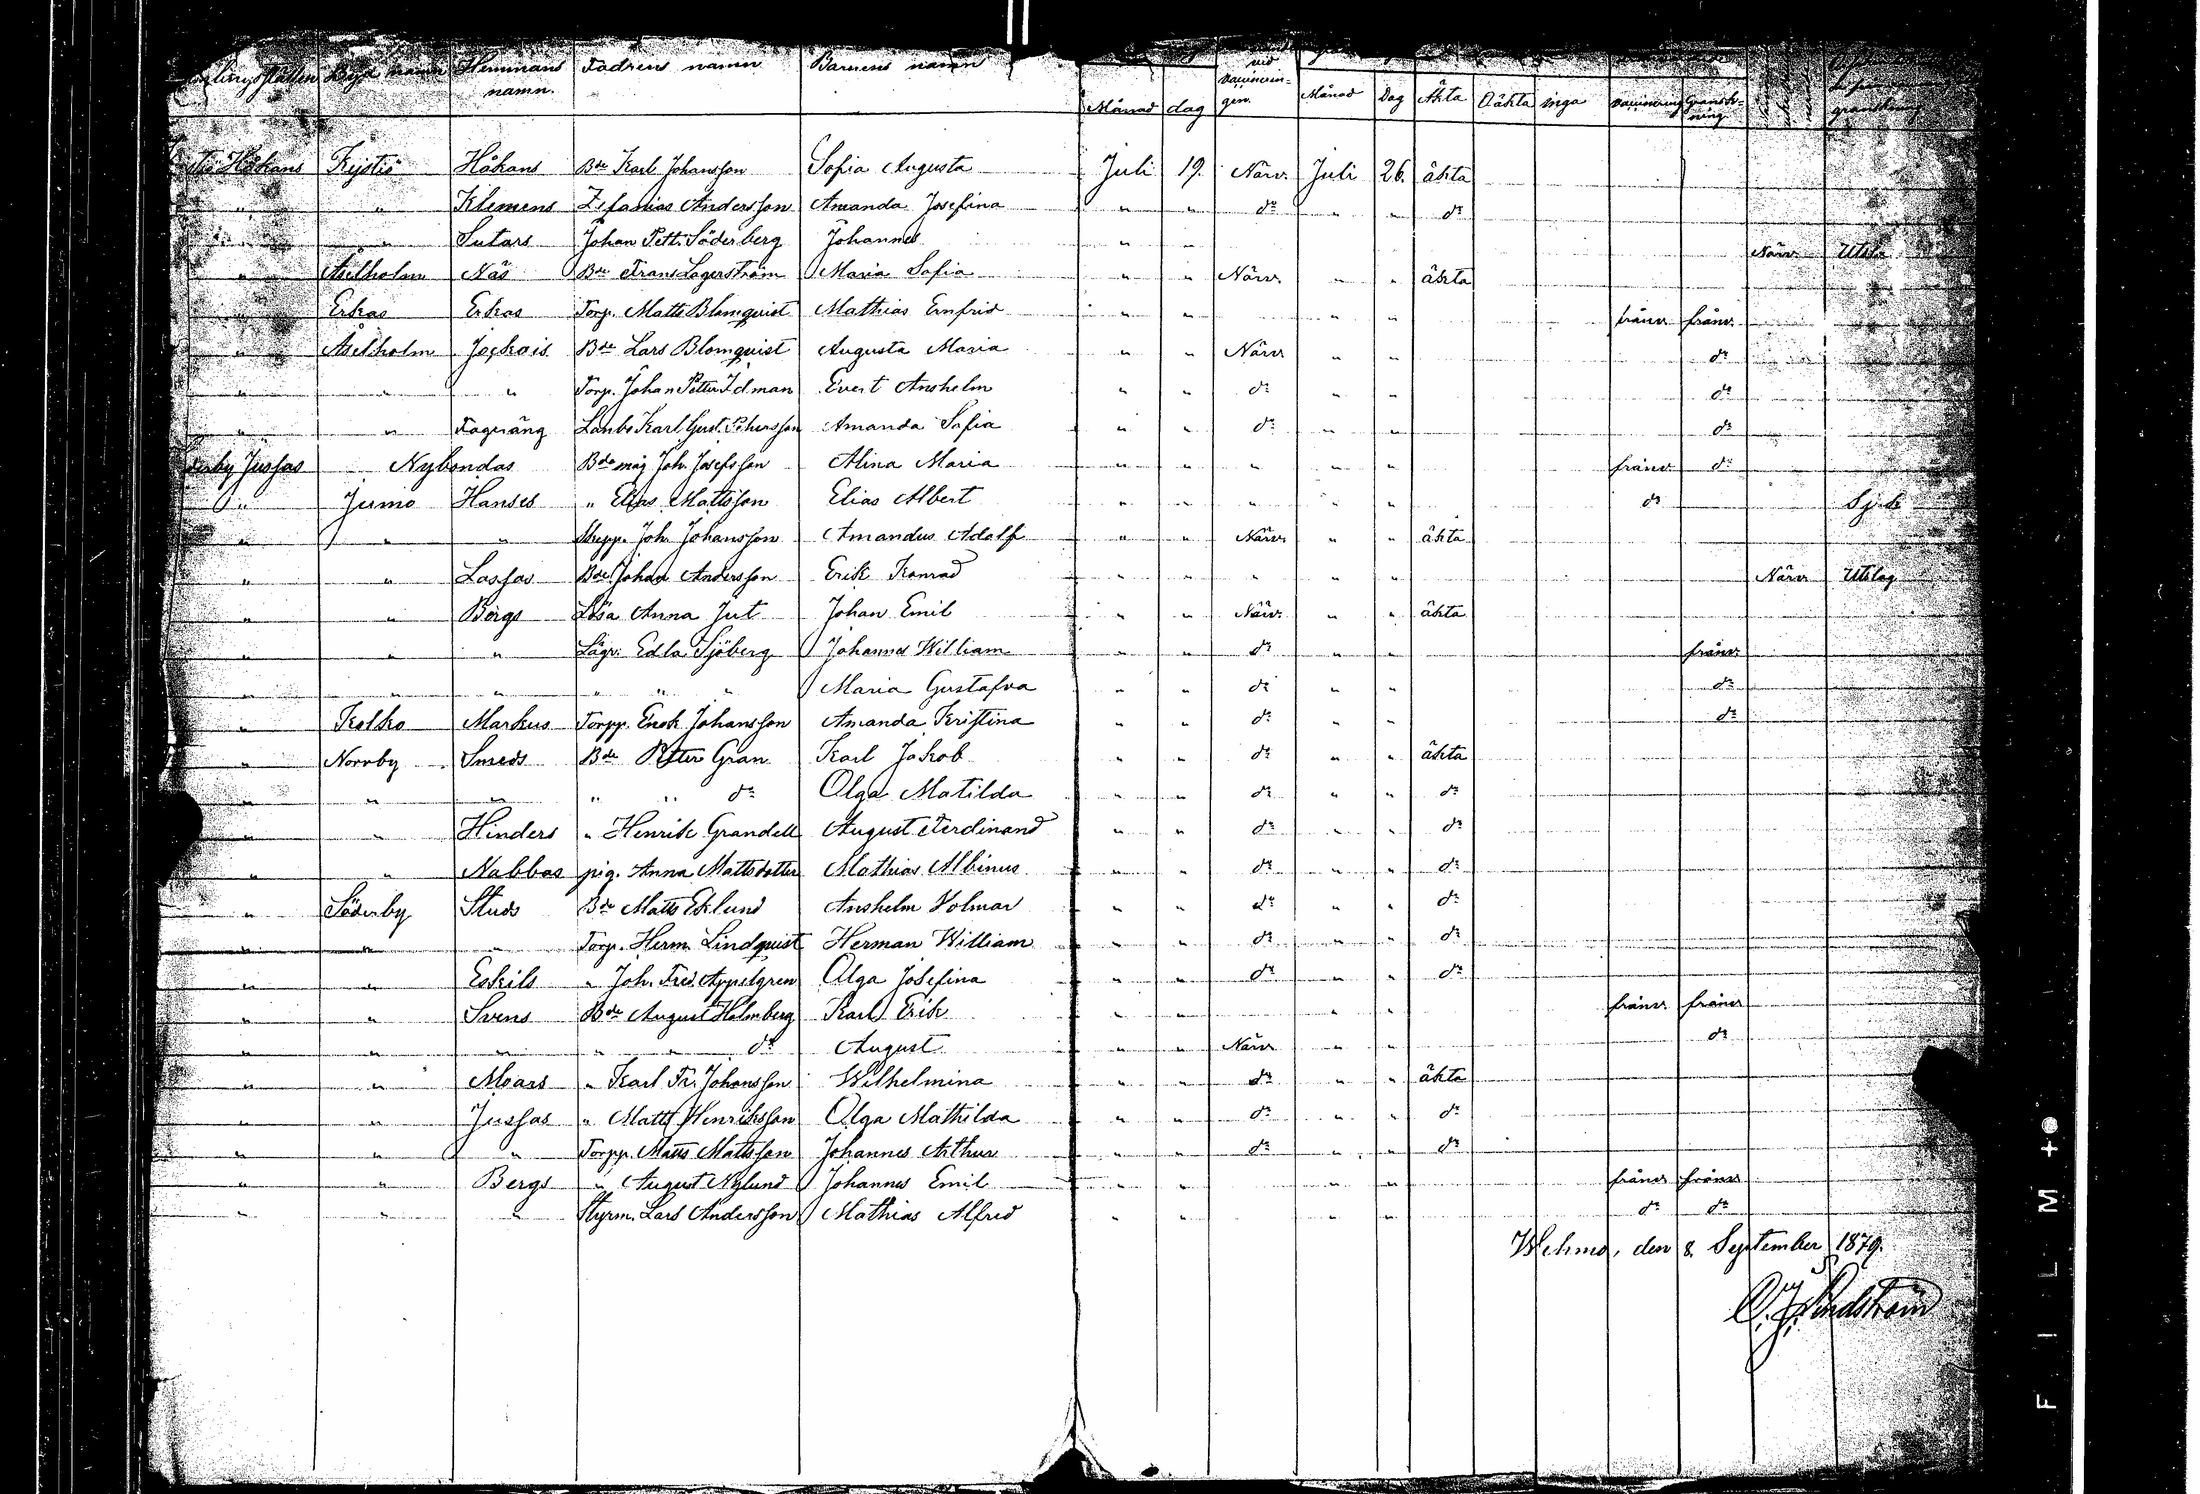 Byns namn Hemmans namn. Fadrens namn Barnens namn Månad dag vid vaccineringen. Månad Dag Äkta Oäkta inga vaccinering granskning
Håkans Håkans Bde Karl Johansson Sofia Augusta Juli 19. Närv. Juli 26. äkta
" " Klemens Zefanias Andersson Amanda Josefina " " do " " do
" " Sutars Johan Pett. Söderberg Johannes " " Närv.
" Näs Bde Frans Lagerström Maria Sofia " " Närv. " " äkta
" Erkas Erkas Torp. Matts Blomquist Mathias Ernfrid " " " " frånv. frånv.
" Åselholm Jockois Bde Lars Blomquist Augusta Maria " " Närv " " do
" " " Torp. Johan Petter Idman Evert Anshelm " " do " " do
" " Fagräng Lanbo Karl Gust. Amanda Sofia " " do " " do
Jussas Nybondas Bde måg Joh. Josefsson Alina Maria " " " " " frånv. do
" Jumo Hanses " Elias Mattsson Elias Albert " " " " " do Sjuk
" " " Skepp. Joh. Johansson Amandus Adolf " " Närv. " " äkta
" " Lassas Bde Johan Andersson Erik Konrad " " " " " Närv Utslag
" " Bergs Lösa Anna Jut Johan Emil " " Närv. " " äkta
" " " Edla Sjöberg Johannes William " " do " " frånv.
" " " " " " Maria Gustafva " " do " " do
" Kolko Markus Torpp. Enok Johansson Amanda Kristina " " do " " do
" Norrby Smeds Bde Petter Gran Karl Jakob " " do " " äkta
" " " " " do Olga Matilda " " do " " do
" " Hinders " Henrik Grandell August Ferdinand " " do " " do
" " Nabbas pig. Anna Mattsdotter Mathias Albinus " " do " " do
" Söderby Studs Bde Matts Eklund Anshelm Volmar " " do " " do
" " " Torp. Herm. Lindquist Herman William " " do " " do
" " Eskils " Joh. Fred. Appelgren Olga Josefina " " do " " do
" " Svens Bde August Holmberg Karl Erik " " " " frånv. frånv
" " " " " do August " " Närv " " do
" " Moars " Karl Fr. Johansson Wilhelmina " " do " " äkta
" " Jussas " Matts Henriksson Olga Mathilda " " do " " do
" " " Torpp. Matts Mattsson Johannes Arthur " " do " " do
" " Bergs " August Nylund Johannes Emil " " " " frånv frånv
" " " Styrm. Lars Andersson Mathias Alfred " " " " do do
Wehmo, den 8 September 1879.
FILM